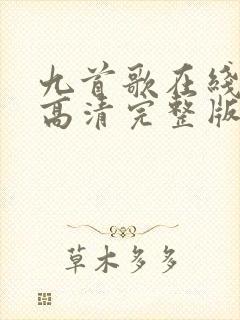 九首歌在线
高清完整版
草木多多